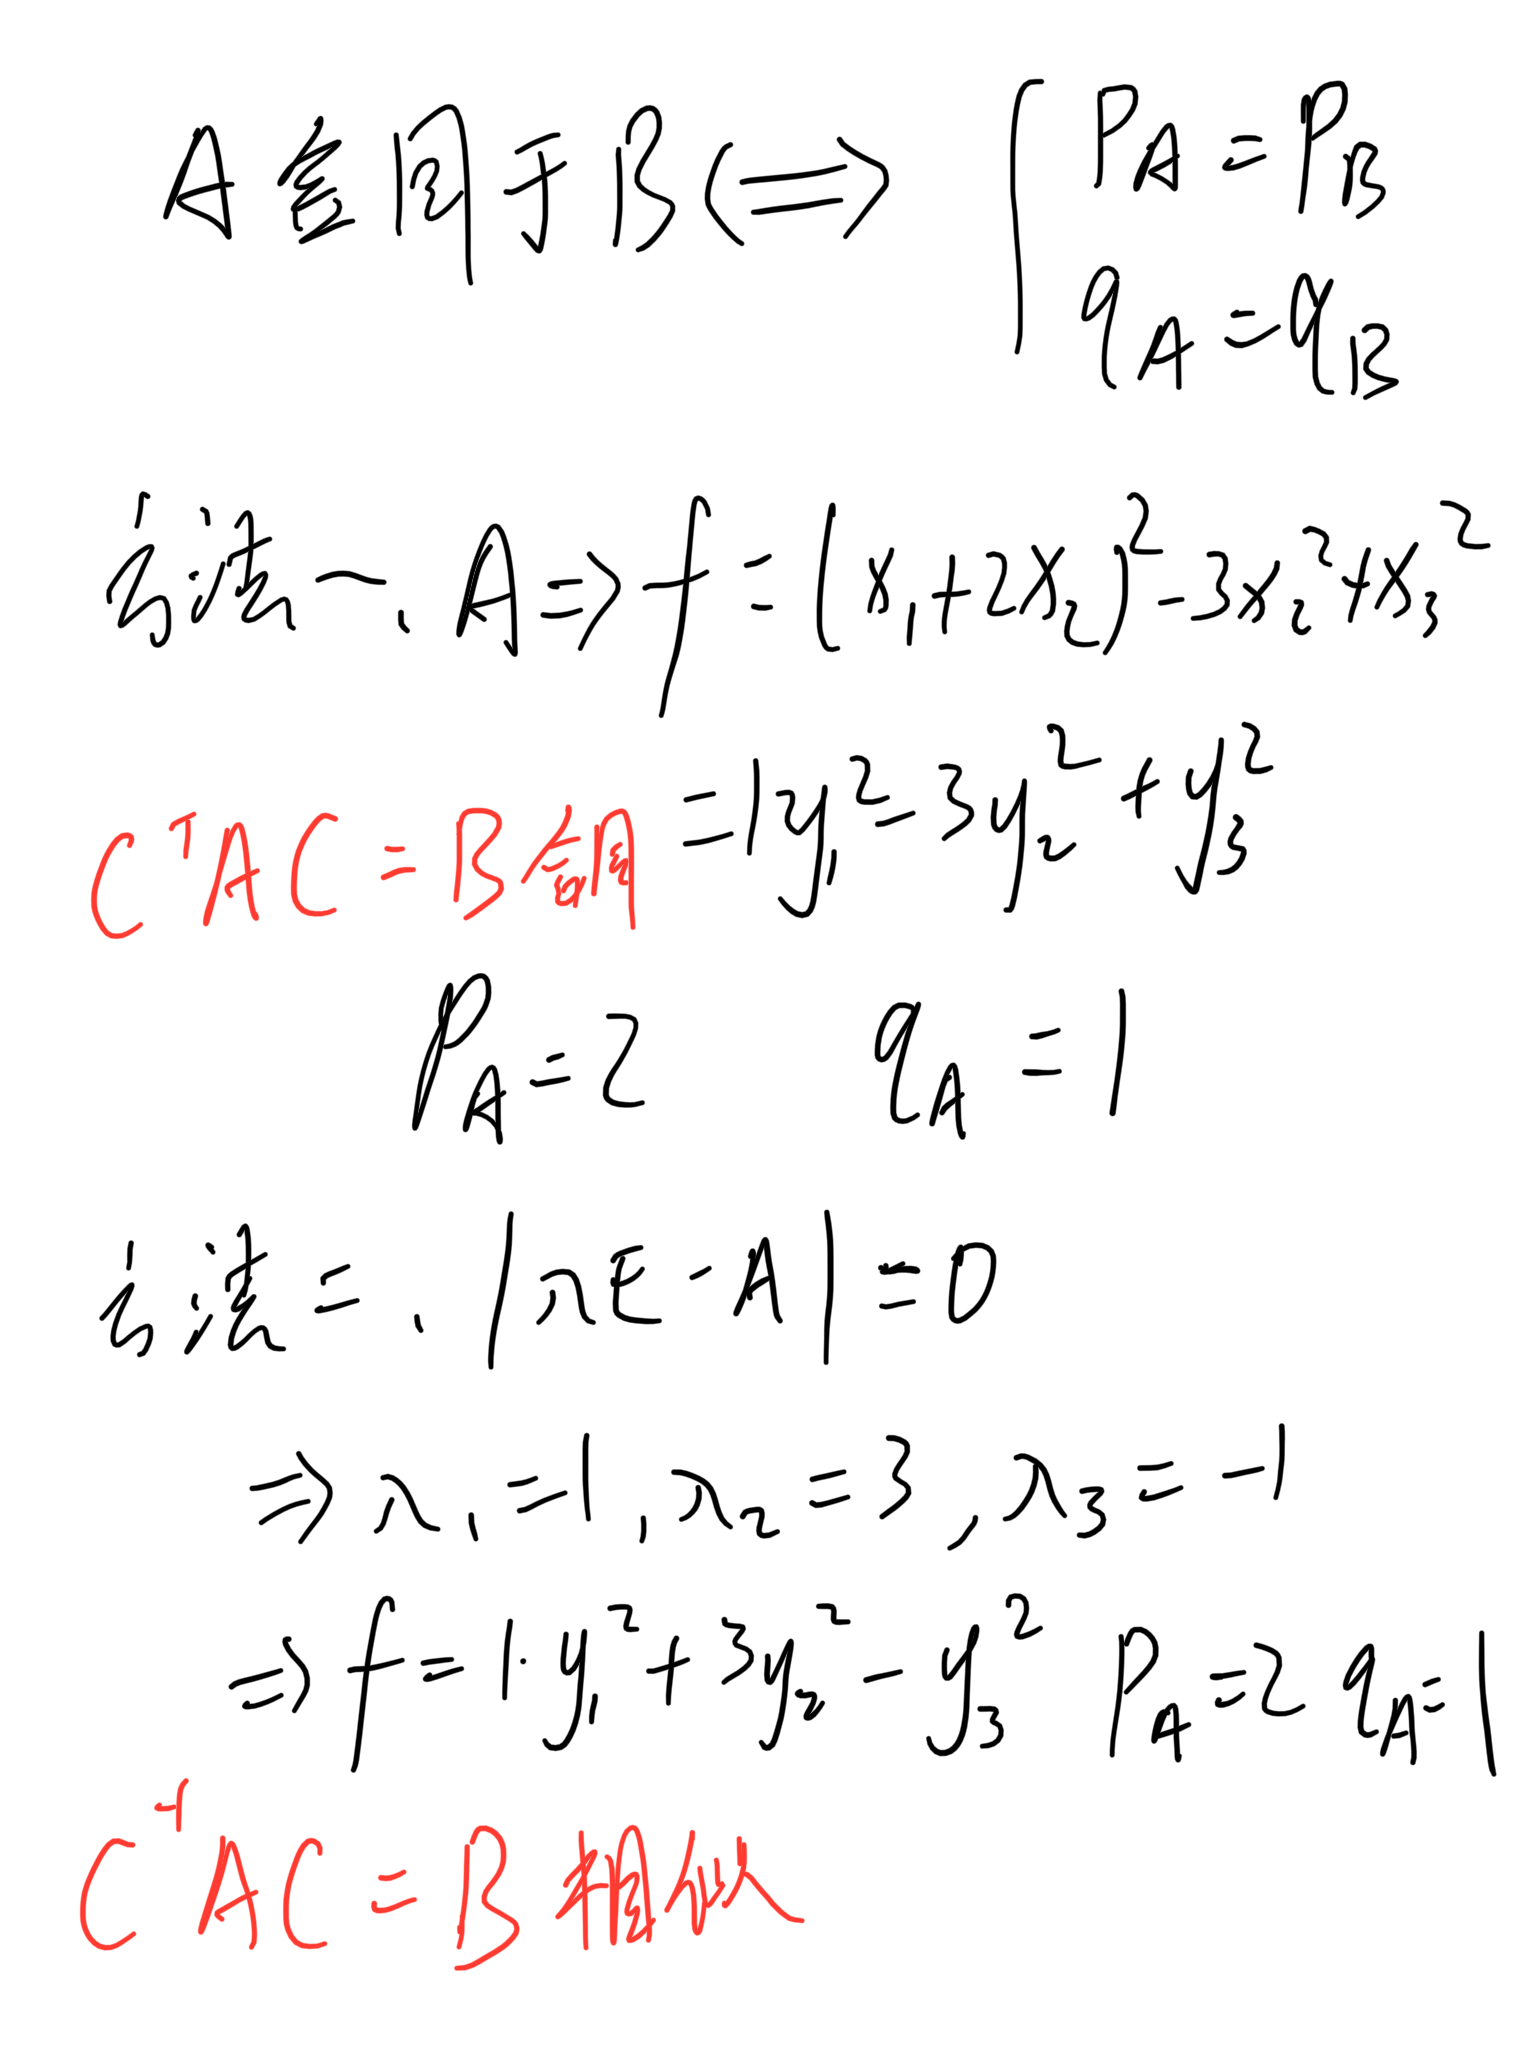 A合同于B⟺{ P_A=P_B
q_A=q_B
方法一、A⇒f=(x₁+2x₂)²-3x₂²+x₃²
=1y₁²-3y₂²+y₃²
CᵀAC=B合同
P_A=2 q_A=1
方法二、|λE-A|=0
⇒λ₁=1,λ₂=3,λ₃=-1
⇒f=1·y₁²+3y₂²-y₃² P_A=2 q_A=1
C⁻¹AC=B相似